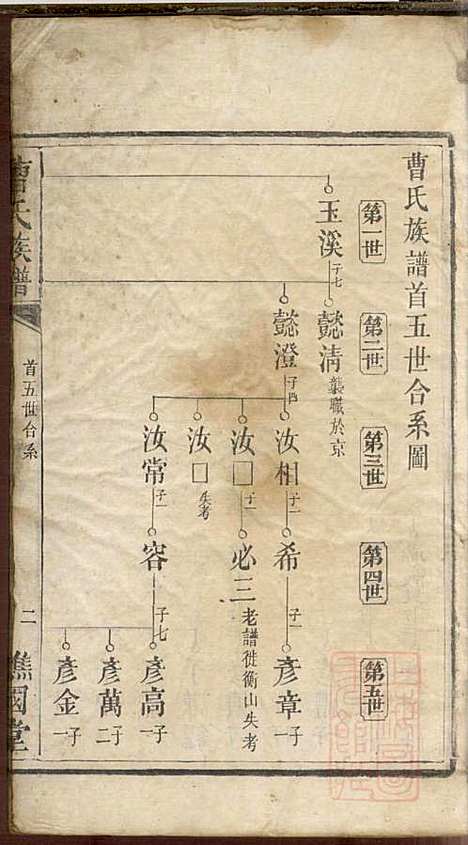 曹氏族譜首五世合系圖
第一世
第二世
第三世
第四世
第五世
玉溪 子七
懿清 襲職於京
懿澄 子四
汝相 子一
希 子一
彥章 一子
汝□ 子一
必三 老譜徙衡山失考
汝□ 失考
汝常 子一
容 子七
彥高 一子
彥萬 二子
彥金 一子
曹氏族譜
首五世合系
二
譙國堂